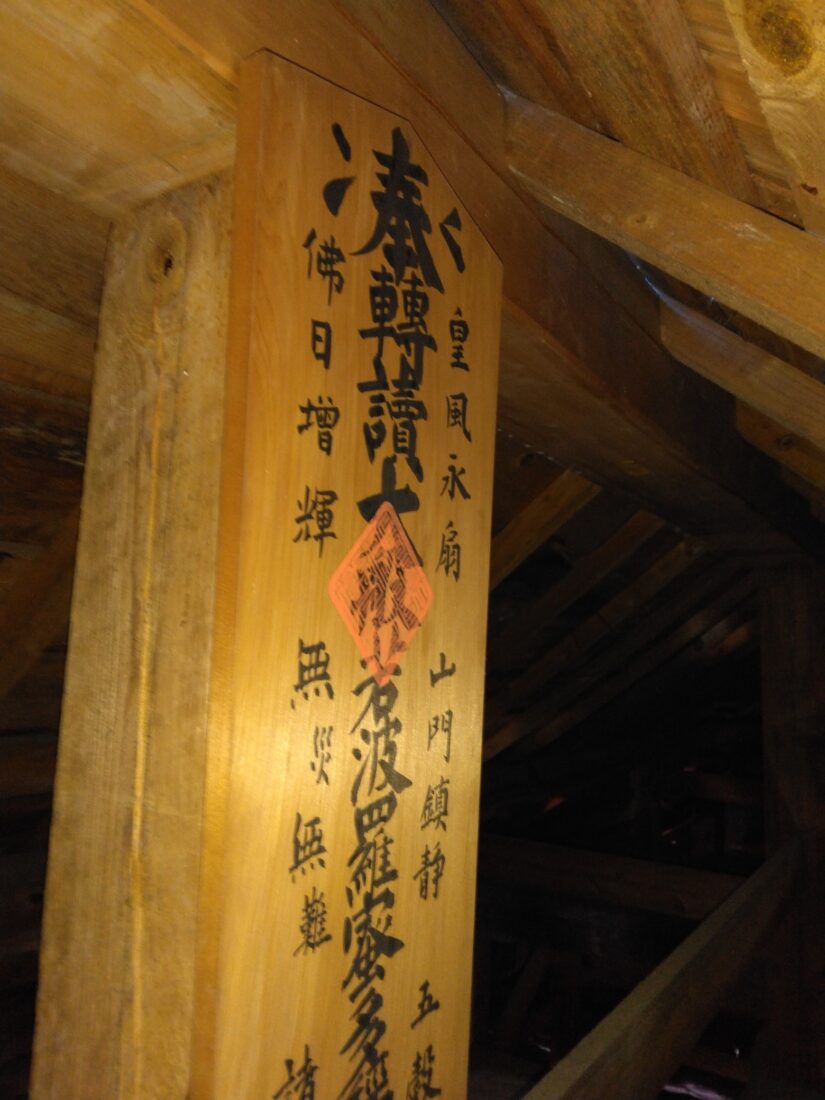 皇風永扇　山門鎮静　五穀
奉轉讀大般若波羅蜜多經
佛日増輝　無災無難　諸